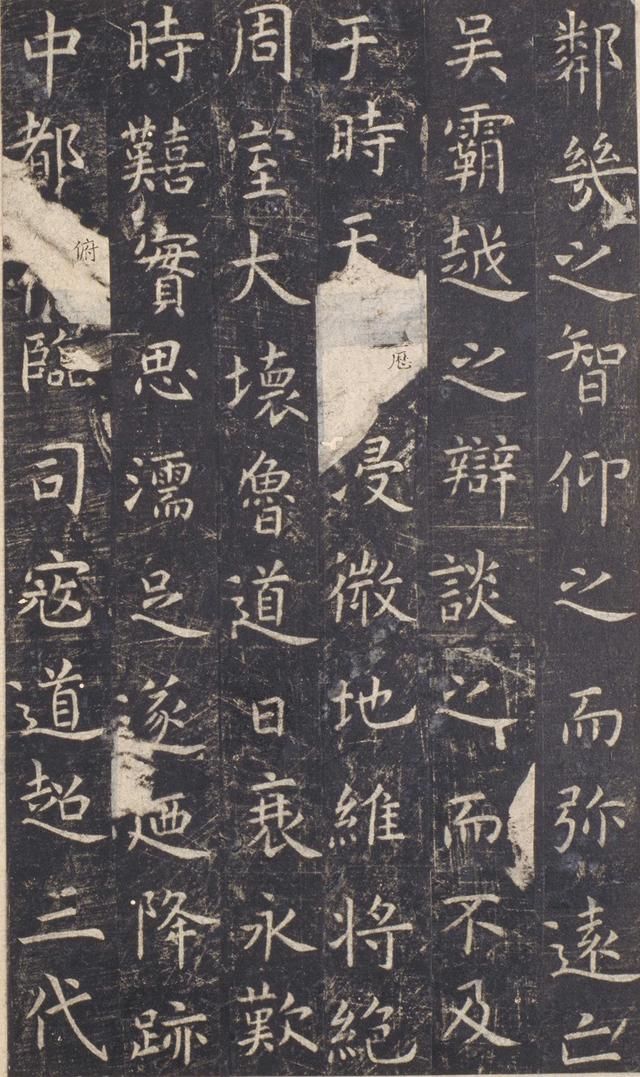 鄰幾之智仰之而弥遠亡
吴霸越之辯談之而不及
于時天厯浸微地維將絶
周室大壞魯道日衰永歎
時囏實思濡足遂廼降跡
中都俯臨司寇道超三代